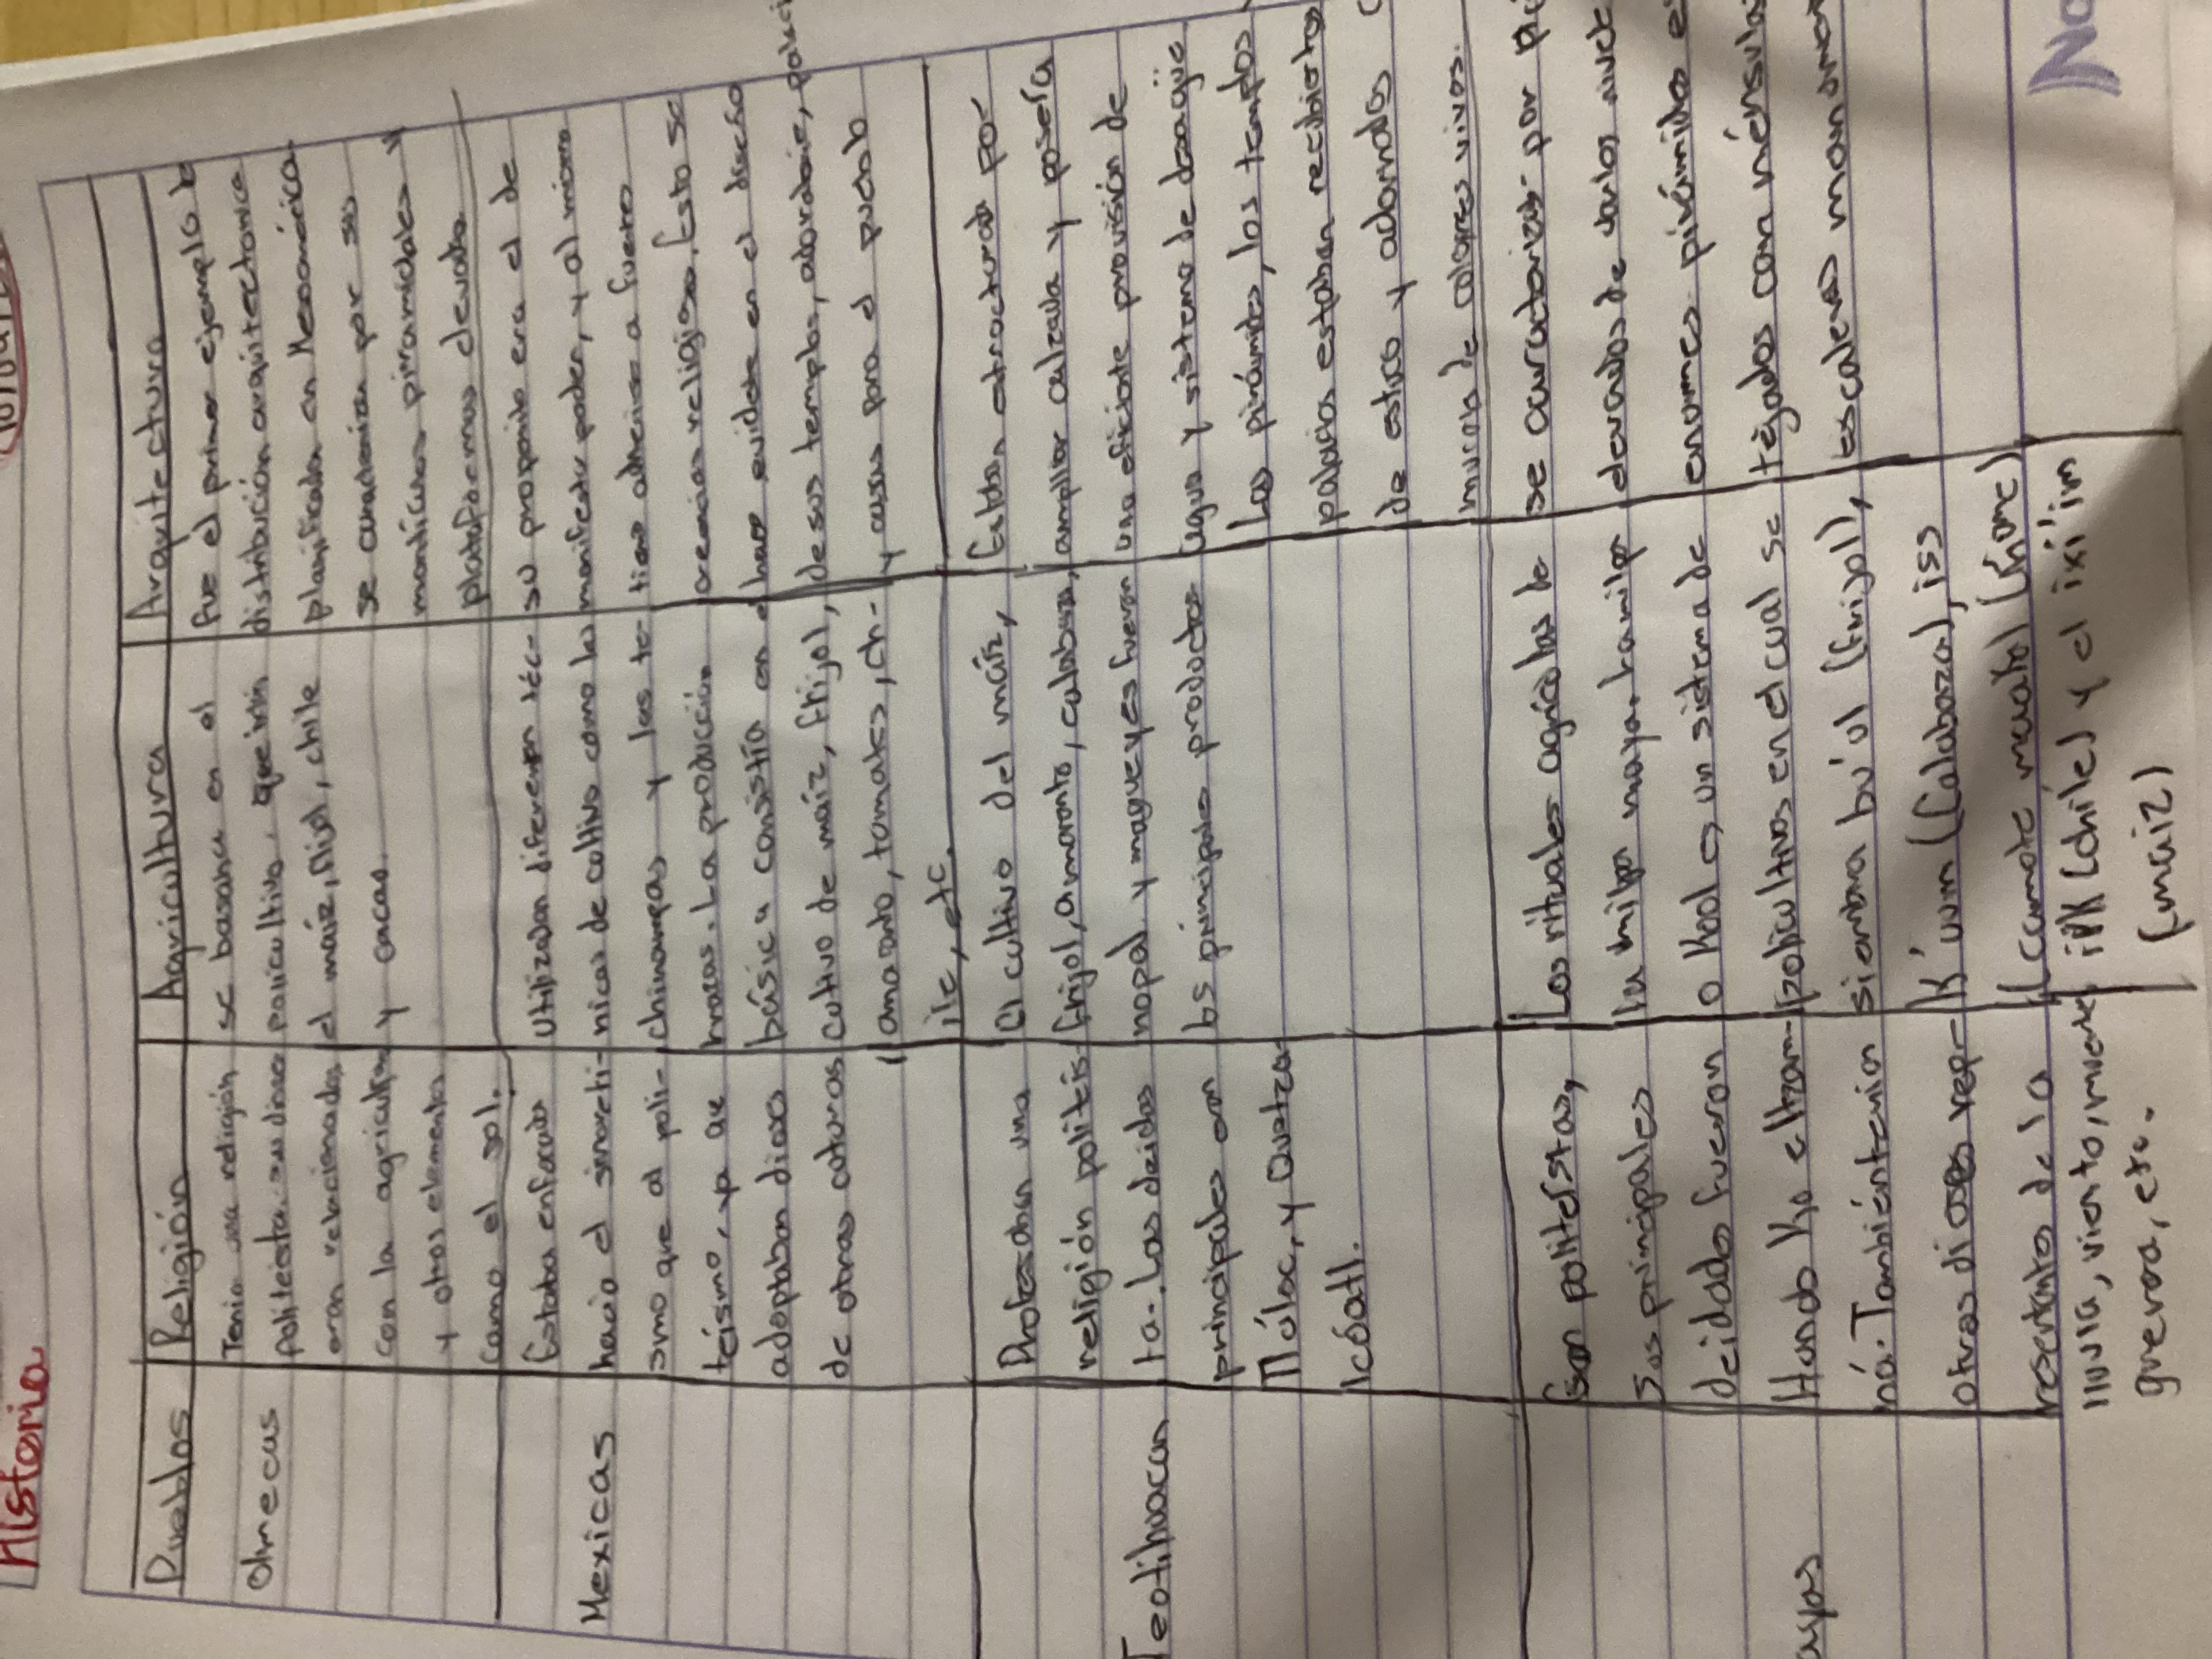 Historia
Pueblos
Religión
Agricultura
Arquitectura
Olmecas
Tenia una religión
politeista. su dioses
eran relacionados
con la agricultura
y otros elementos
como el sol.
se basaba en el
policultivo, que irin
el maíz, frijol, chile
y cacao.
fue el primer ejemplo
distribución arquitectonica
planificada en Mesoamérica
se caracterizan por sus
montículos piramidales y
plataformas elevadas
Mexicas
Estaba enfocado
hacia el sincreti-
smo que al poli-
teísmo, ya que
adoptaban dioses
de otras culturas
Utilizaban diferentes téc-
nicas de cultivo como las
chinampas y las te-
rrazas. La producción
básica consistía en el
cultivo de maíz, frijol,
amaranto, tomates, ch-
ile, etc.
su proposito era el de
manifestar poder, y al mismo
tiempo adherirse a fuertes
creencias religiosas. Esto se
hace evidente en el diseño
de sus templos, abordaje,
y casas para el pueblo
Teotihuacan
Profesaban una
religión politeis-
ta. Las deidades
principales eran
Tláloc, y Quetza-
lcóatl.
El cultivo del maíz,
frijol, amaranto, calabaza,
nopal y magueyes fueron
los principales productos
Estaba estructurada por
amplias calzada y poseía
una eficiente provisión de
agua y sistema de desagüe
Las pirámides, los templos
palacios estaban recubiertos
de estuco y adornados
murals de colores vivos.
ayas
Son politeístas,
sus principales
deidades fueron
Hunab Ku e Itzam-
ná. También tenían
otros dioses rep-
resentante de la
lluvia, viento, muerte,
guerra, etc.
Los rituales agrícolas de
la milpa maya. La milpa
o Kool es un sistema de
policultivos en el cual se
siembra bú'ul (frijol),
K'uum (Calabaza), iis
(camote macal) (ñame)
iik (chile) y el ixi'im
(maíz)
se caracterizas por
elevados de varios
enormes pirámides
tejados con ménsulas
escaleras